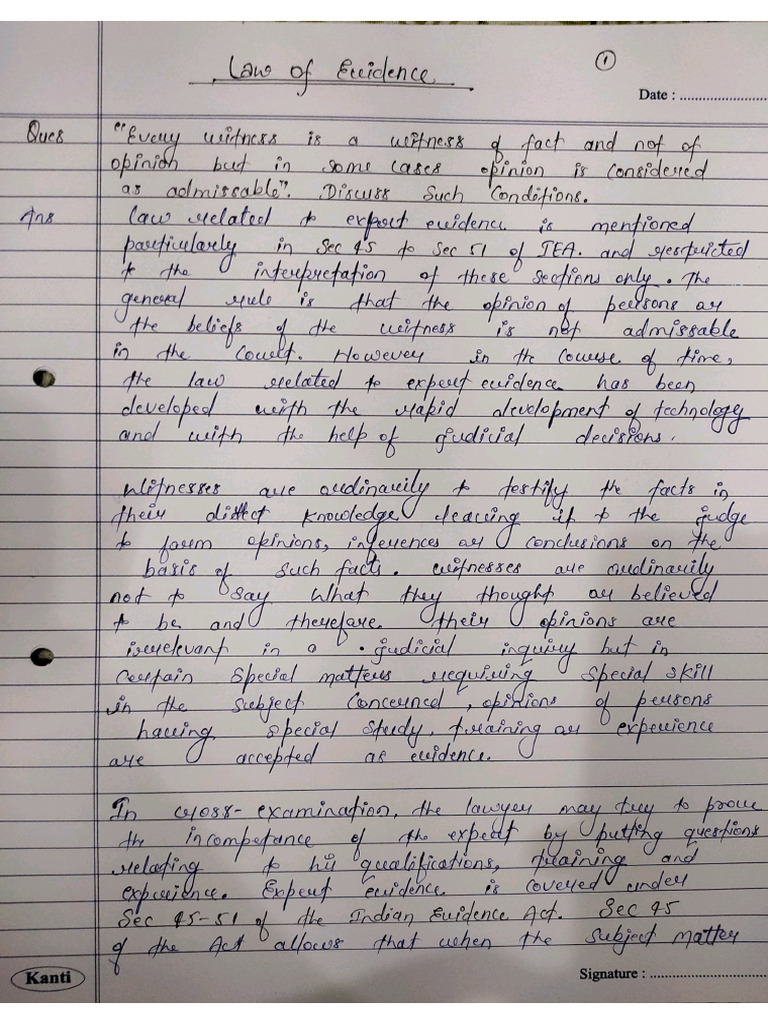 Law of Evidence
1
Date : ..............................
Ques "Every witness is a witness of fact and not of
opinion but in some cases opinion is considered
as admissable". Discuss such Conditions.
Ans Law related to expert evidence is mentioned
particularly in Sec 45 to Sec 51 of IEA. and restricted
to the interpretation of these sections only. The
general rule is that the opinion of persons or
the beliefs of the witness is not admissable
in the Court. However in the course of time,
the law related to expert evidence has been
developed with the rapid development of technology
and with the help of judicial decisions.
Witnesses are ordinarily to testify the facts in
their knowledge leaving it to the judge
to form opinions, inferences or conclusions on the
basis of such facts. witnesses are ordinarily
not to say what they thought or believed
to be and therefore their opinions are
irrelevant in a judicial inquiry but in
certain special matters requiring special skill
in the subject concerned, opinions of persons
having special study, training or experience
are accepted as evidence.
In cross-examination, the lawyer may try to prove
the incompetance of the expert by putting questions
relating to his qualifications, training and
experience. Expert Evidence is covered under
Sec 45-51 of the Indian Evidence Act. Sec 45
of the Act allows that when the subject matter
Kanti
Signature : ..............................